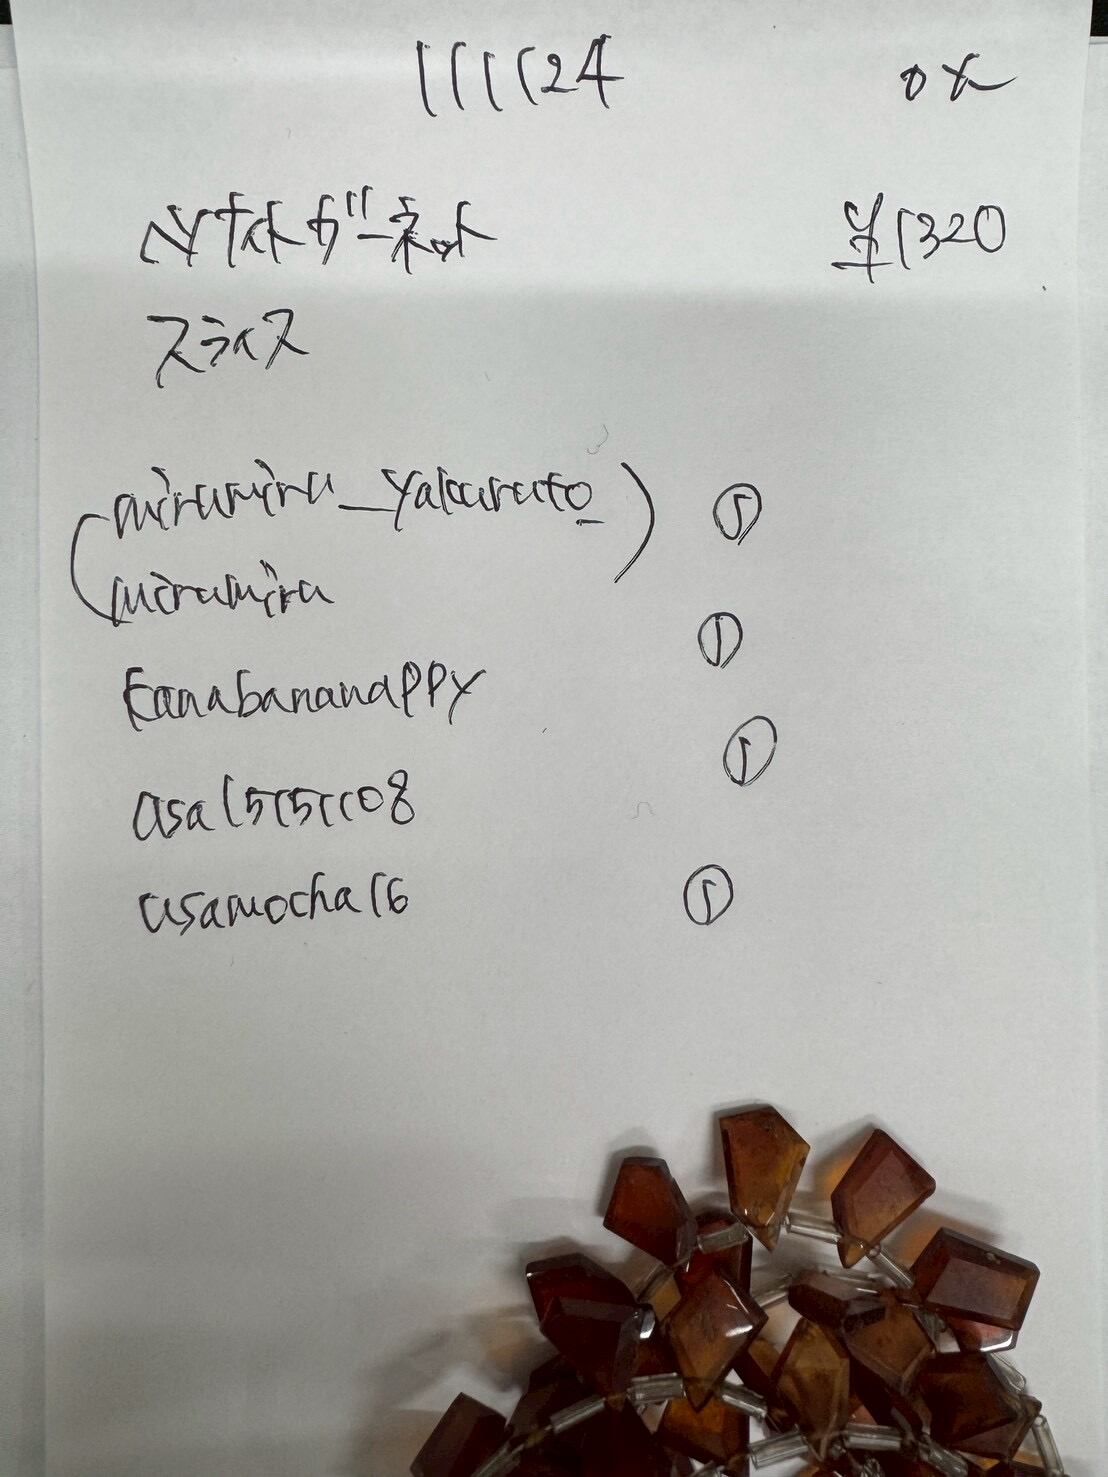 111124 OK
ヘソナイトガーネット ¥1320
スライス
(miramira_yakuruto_) ①
miramira
kanabananappy ①
asa15151108 ①
usamocha16 ①